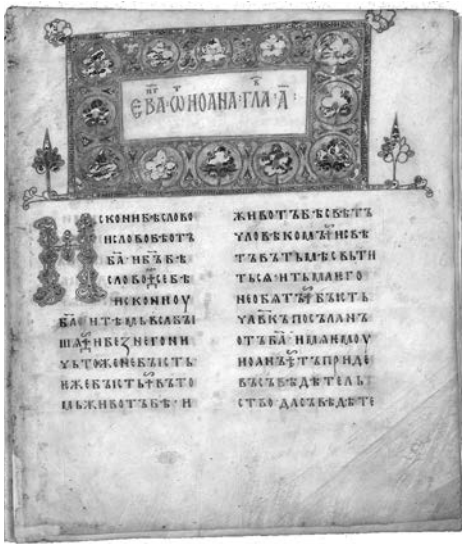 ЕВА҃ · Ѿ ИОАНА · ГЛА҃ · А҃ :
ИСКОНИ БѢ СЛОВО
И СЛОВО БѢ ОТЪ
БА҃ · И БЪ҃ БѢ
СЛОВО · СЕ БѢ
ИСКОНИ ОУ
БА҃ · И ТѢМЬ ВСѦ БЫ
ША · И БЕЗ НЕГО НИ
ЧЬТОЖЕ НЕ БЫСТЬ ·
ѤЖЕ БЫСТЬ · ВЪ ТО
МЬ ЖИВОТЪ БѢ · И
ЖИВОТЪ БѢ СВѢТЪ
ЧЛОВѢКОМЪ · И СВѢ
ТЪ ВЪ ТЬМѢ СВЬТИ
ТЬСѦ · И ТЬМА ѤГО
НЕ ОБѦТЪ · БЫСТЬ
ЧЛВ҃КЪ ПОСЪЛАНЪ
ОТЪ БА҃ · ИМѦ ѤМОУ
ИОАНЪ · ТЪ ПРИДЕ
ВЪ СЪВѢДѢТЕЛЬ
СТВО · ДА СЪВѢДѢТЕ